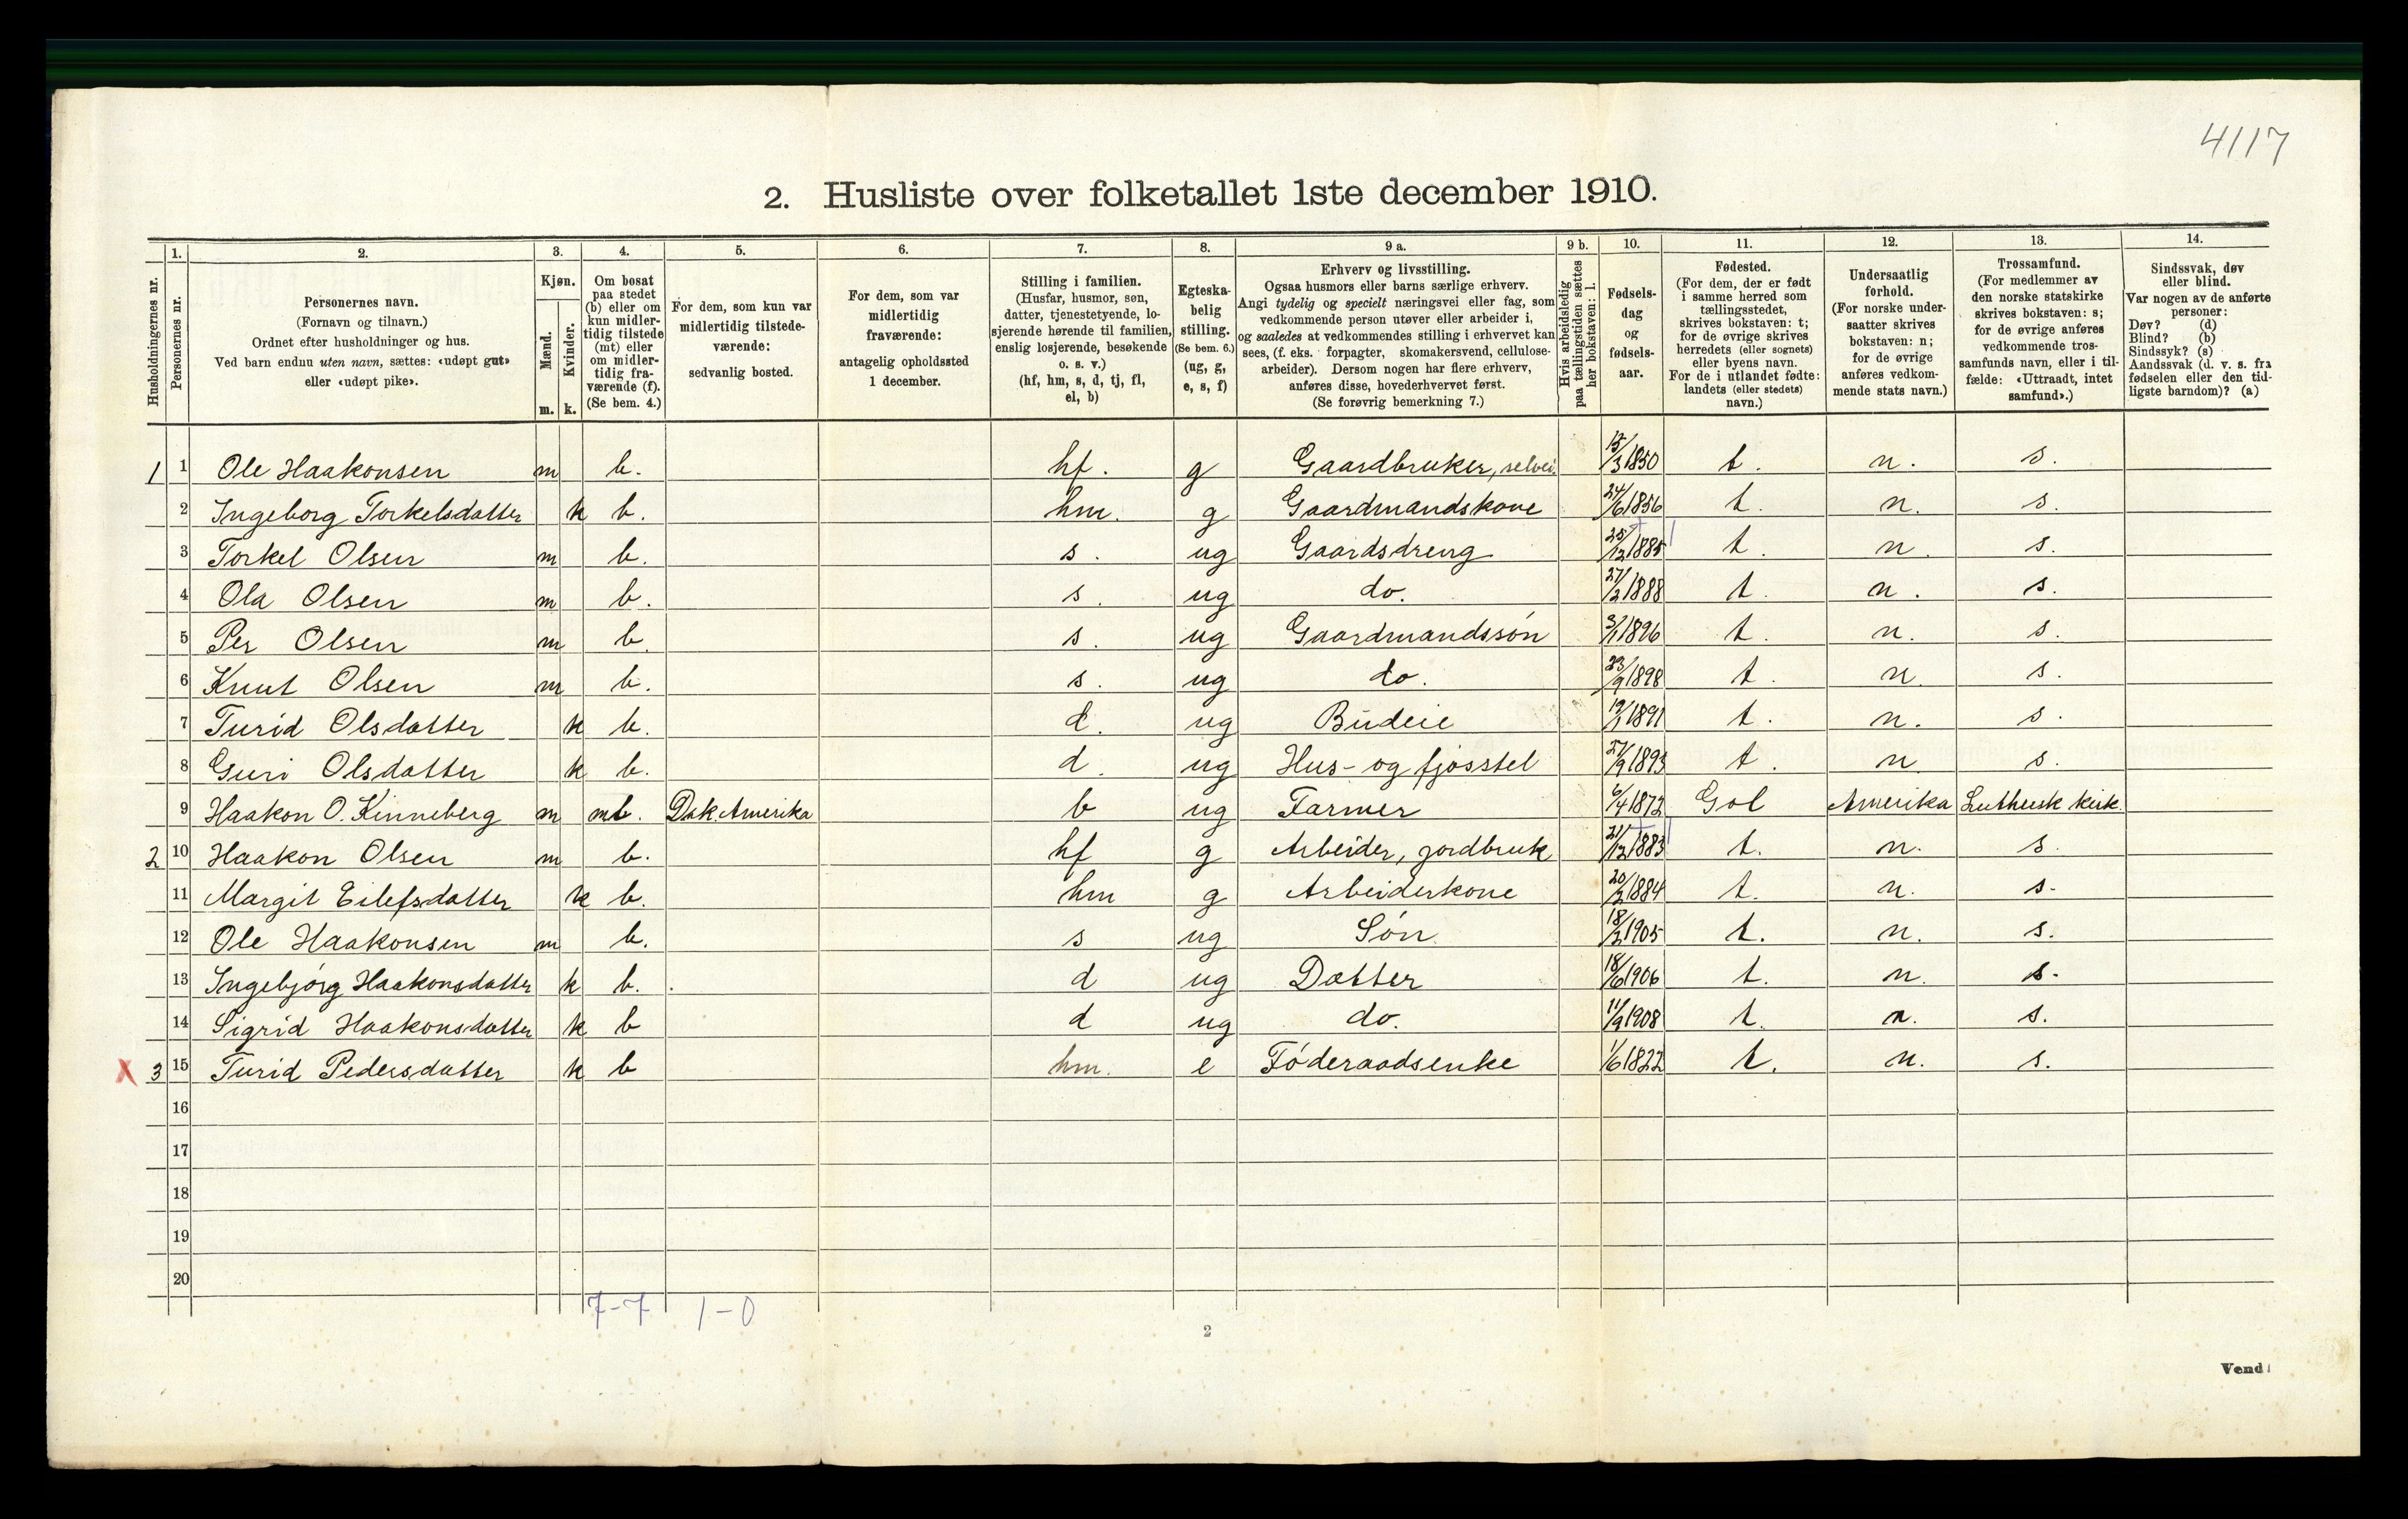 4117
2. Husliste over folketallet 1ste december 1910.
Husholdningernes nr.
1.
Personernes nr.
2.
Personernes navn.
(Fornavn og tilnavn.)
Ordnet efter husholdninger og hus.
Ved barn endnu uten navn, sættes: «udøpt gut»
eller «udøpt pike».
3.
Kjøn.
Mænd.
Kvinder.
m. k.
4.
Om bosat
paa stedet
(b) eller om
kun midler-
tidig tilstede
(mt) eller
om midler-
tidig fra-
værende (f).
(Se bem. 4.)
5.
For dem, som kun var
midlertidig tilstede-
værende:
sedvanlig bosted.
6.
For dem, som var
midlertidig
fraværende:
antagelig opholdssted
1 december.
7.
Stilling i familien.
(Husfar, husmor, søn,
datter, tjenestetyende, lo-
sjerende hørende til familien,
enslig losjerende, besøkende
o. s. v.)
(hf, hm, s, d, tj, fl,
el, b)
8.
Egteska-
belig
stilling.
(Se bem. 6.)
(ug, g,
e, s, f)
9 a.
Erhverv og livsstilling.
Ogsaa husmors eller barns særlige erhverv.
Angi tydelig og specielt næringsvei eller fag, som
vedkommende person utøver eller arbeider i,
og saaledes at vedkommendes stilling i erhvervet kan
sees, (f. eks. forpagter, skomakersvend, cellulose-
arbeider). Dersom nogen har flere erhverv,
anføres disse, hovederhvervet først.
(Se forøvrig bemerkning 7.)
9 b.
Hvis arbeidsledig
paa tællingstiden sættes
her bokstaven: l.
10.
Fødsels-
dag
og
fødsels-
aar.
11.
Fødested.
(For dem, der er født
i samme herred som
tællingsstedet,
skrives bokstaven: t;
for de øvrige skrives
herredets (eller sognets)
eller byens navn.
For de i utlandet fødte:
landets (eller stedets)
navn.)
12.
Undersaatlig
forhold.
(For norske under-
saatter skrives
bokstaven: n;
for de øvrige
anføres vedkom-
mende stats navn.)
13.
Trossamfund.
(For medlemmer av
den norske statskirke
skrives bokstaven: s;
for de øvrige anføres
vedkommende tros-
samfunds navn, eller i til-
fælde: «Uttraadt, intet
samfund».)
14.
Sindssvak, døv
eller blind.
Var nogen av de anførte
personer:
Døv? (d)
Blind? (b)
Sindssyk? (s)
Aandssvak (d. v. s. fra
fødselen eller den tid-
ligste barndom)? (a)
1 1 Ole Haakonsen m b. hf. g Gaardbruker, selvei. 15/3 1850 t. n. s.
2 Ingeborg Torkelsdatter k b. hm. g Gaardmandskone 24/6 1856 t. n. s.
3 Torkel Olsen m b. s. ug Gaardsdreng 25/12 1885 t. n. s.
4 Ola Olsen m b. s. ug do. 27/2 1888 t. n. s.
5 Per Olsen m b. s. ug Gaardmandssøn 3/1 1896 t. n. s.
6 Knut Olsen m b. s. ug do. 23/9 1898 t. n. s.
7 Turid Olsdatter k b. d. ug Budeie 19/1 1891 t. n. s.
8 Guri Olsdatter k b. d. ug Hus- og fjøsstel 27/9 1893 t. n. s.
9 Haakon O. Kinneberg m mt. Dak. Amerika b ug Farmer 6/4 1872 Gol Amerika Luthersk kirk.
2 10 Haakon Olsen m b. hf g Arbeider, jordbruk 21/12 1883 t. n. s.
11 Margit Eilefsdatter k b. hm g Arbeiderkone 20/2 1884 t. n. s.
12 Ole Haakonsen m b. s ug Søn 18/2 1905 t. n. s.
13 Ingebjørg Haakonsdatter k b. d ug Datter 18/6 1906 t. n. s.
14 Sigrid Haakonsdatter k b d ug do. 11/9 1908 t. n. s.
X 3 15 Turid Pedersdatter k b hm. e Føderaadsenke 1/6 1822 t. n. s.
16
17
18
19
20
7-7 1-0
2
Vend